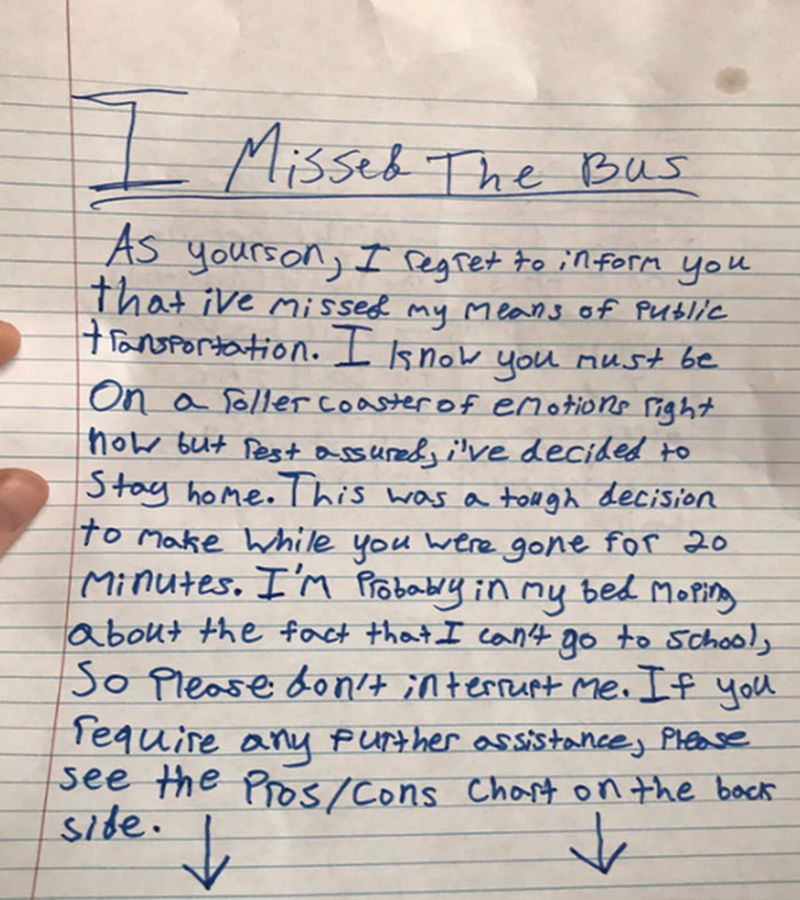 I Missed The Bus
As yourson, I regret to inform you
that ive missed my means of public
transportation. I know you must be
On a roller coaster of emotions right
now but rest assured, i've decided to
stay home. This was a tough decision
to make while you were gone for 20
minutes. I'm probably in my bed moping
about the fact that I can't go to school,
So please don't interrupt me. If you
require any further assistance, please
see the Pros/Cons Chart on the back
side.